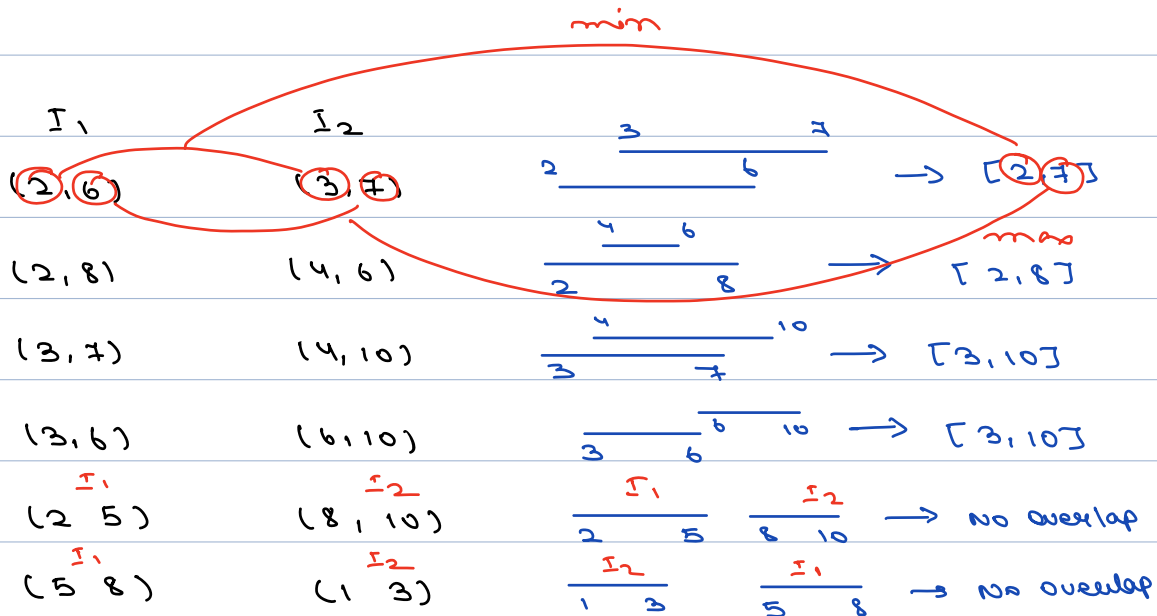 min
I1 I2
(2,6) (3,7) 3 7 2 6 → [2,7]
max
(2,8) (4,6) 4 6 2 8 → [2,8]
(3,7) (4,10) 4 10 3 7 → [3,10]
(3,6) (6,10) 3 6 6 10 → [3,10]
I1 I2 I1 I2
(2 5) (8,10) 2 5 8 10 → No overlap
I1 I2 I2 I1
(5 8) (1 3) 1 3 5 8 → No overlap